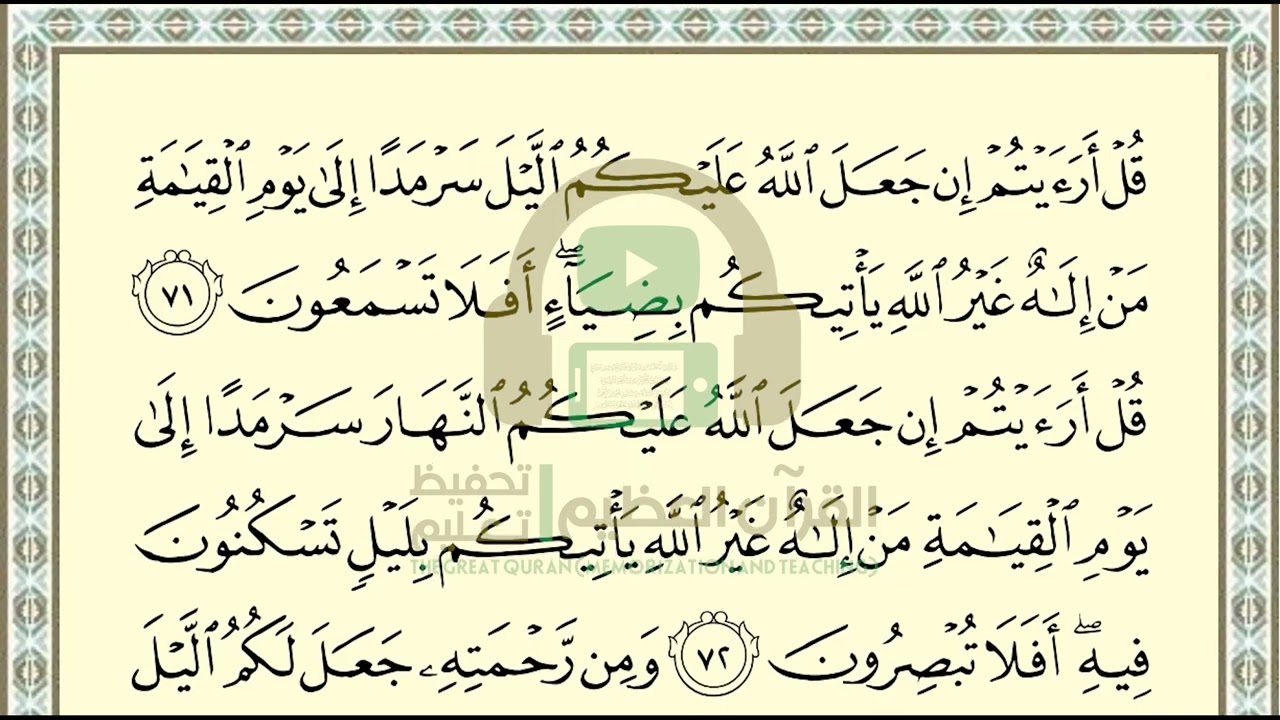 قُلْ أَرَءَيْتُمْ إِن جَعَلَ ٱللَّهُ عَلَيْكُمُ ٱلَّيْلَ سَرْمَدًا إِلَىٰ يَوْمِ ٱلْقِيَٰمَةِ
مَنْ إِلَٰهٌ غَيْرُ ٱللَّهِ يَأْتِيكُم بِضِيَآءٍ ۖ أَفَلَا تَسْمَعُونَ ٧١
قُلْ أَرَءَيْتُمْ إِن جَعَلَ ٱللَّهُ عَلَيْكُمُ ٱلنَّهَارَ سَرْمَدًا إِلَىٰ
القرآن العظيم | تحفيظ تعليم
يَوْمِ ٱلْقِيَٰمَةِ مَنْ إِلَٰهٌ غَيْرُ ٱللَّهِ يَأْتِيكُم بِلَيْلٍ تَسْكُنُونَ
THE GREAT QURAN (MEMORIZATION AND TEACHING)
فِيهِ ۖ أَفَلَا تُبْصِرُونَ ٧٢ وَمِن رَّحْمَتِهِۦ جَعَلَ لَكُمُ ٱلَّيْلَ